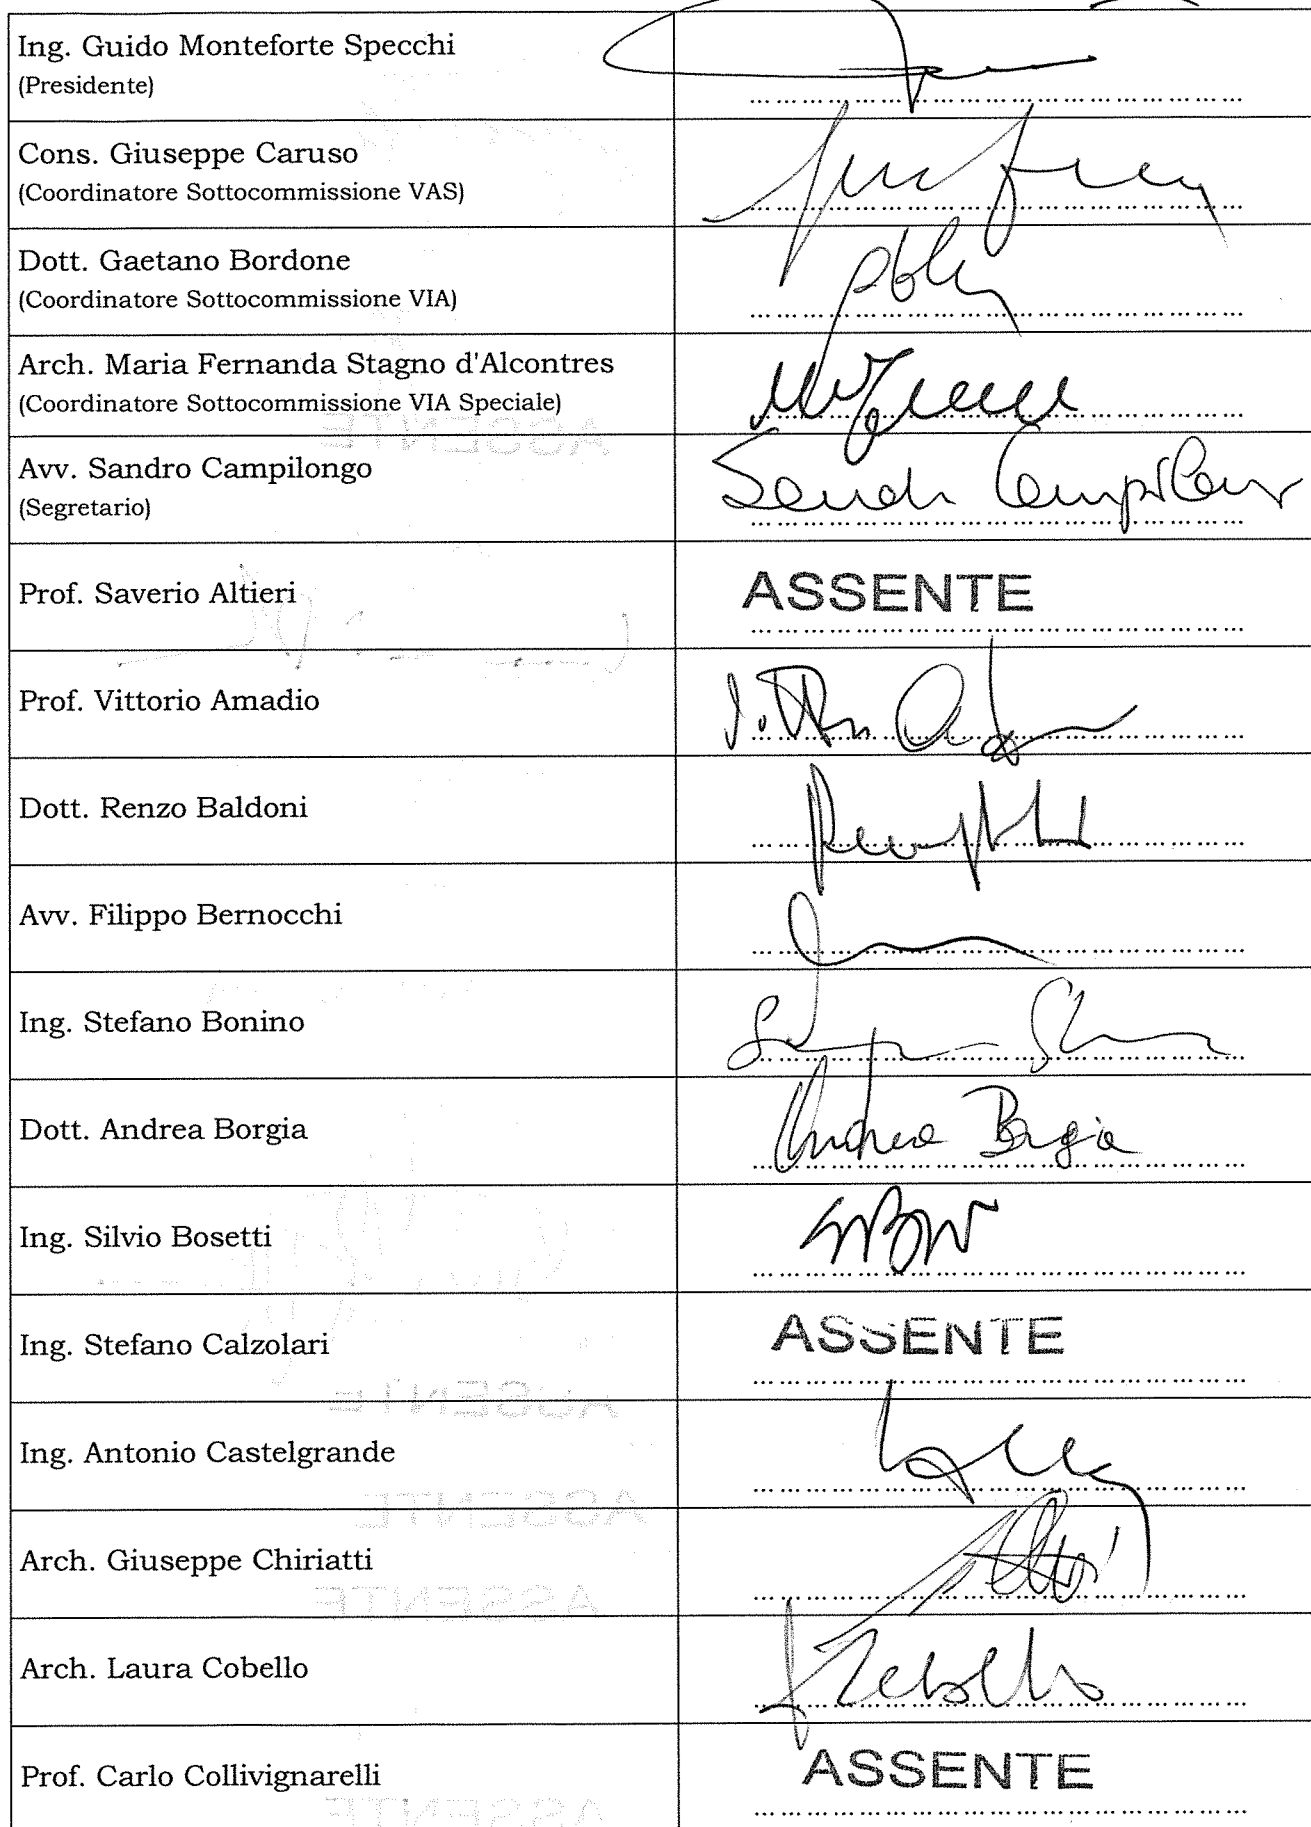 Ing. Guido Monteforte Specchi
(Presidente)
Cons. Giuseppe Caruso
(Coordinatore Sottocommissione VAS)
Dott. Gaetano Bordone
(Coordinatore Sottocommissione VIA)
Arch. Maria Fernanda Stagno d'Alcontres
(Coordinatore Sottocommissione VIA Speciale)
Avv. Sandro Campilongo
(Segretario)
Prof. Saverio Altieri
ASSENTE
Prof. Vittorio Amadio
Dott. Renzo Baldoni
Avv. Filippo Bernocchi
Ing. Stefano Bonino
Dott. Andrea Borgia
Andrea Borgia
Ing. Silvio Bosetti
Ing. Stefano Calzolari
ASSENTE
Ing. Antonio Castelgrande
Arch. Giuseppe Chiriatti
Arch. Laura Cobello
Prof. Carlo Collivignarelli
ASSENTE